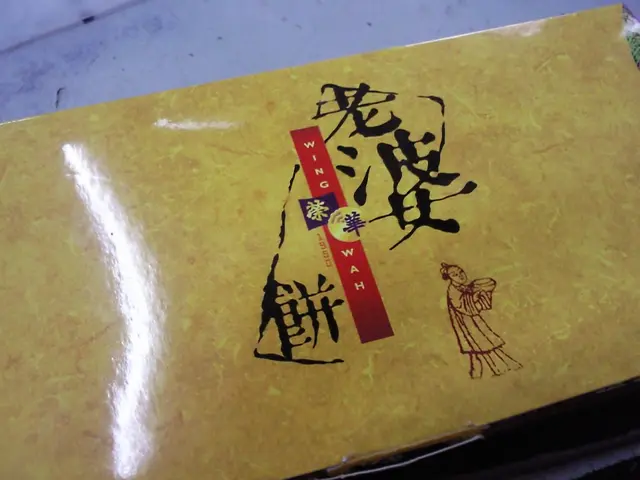 老婆
餅
WING
榮華
WAH